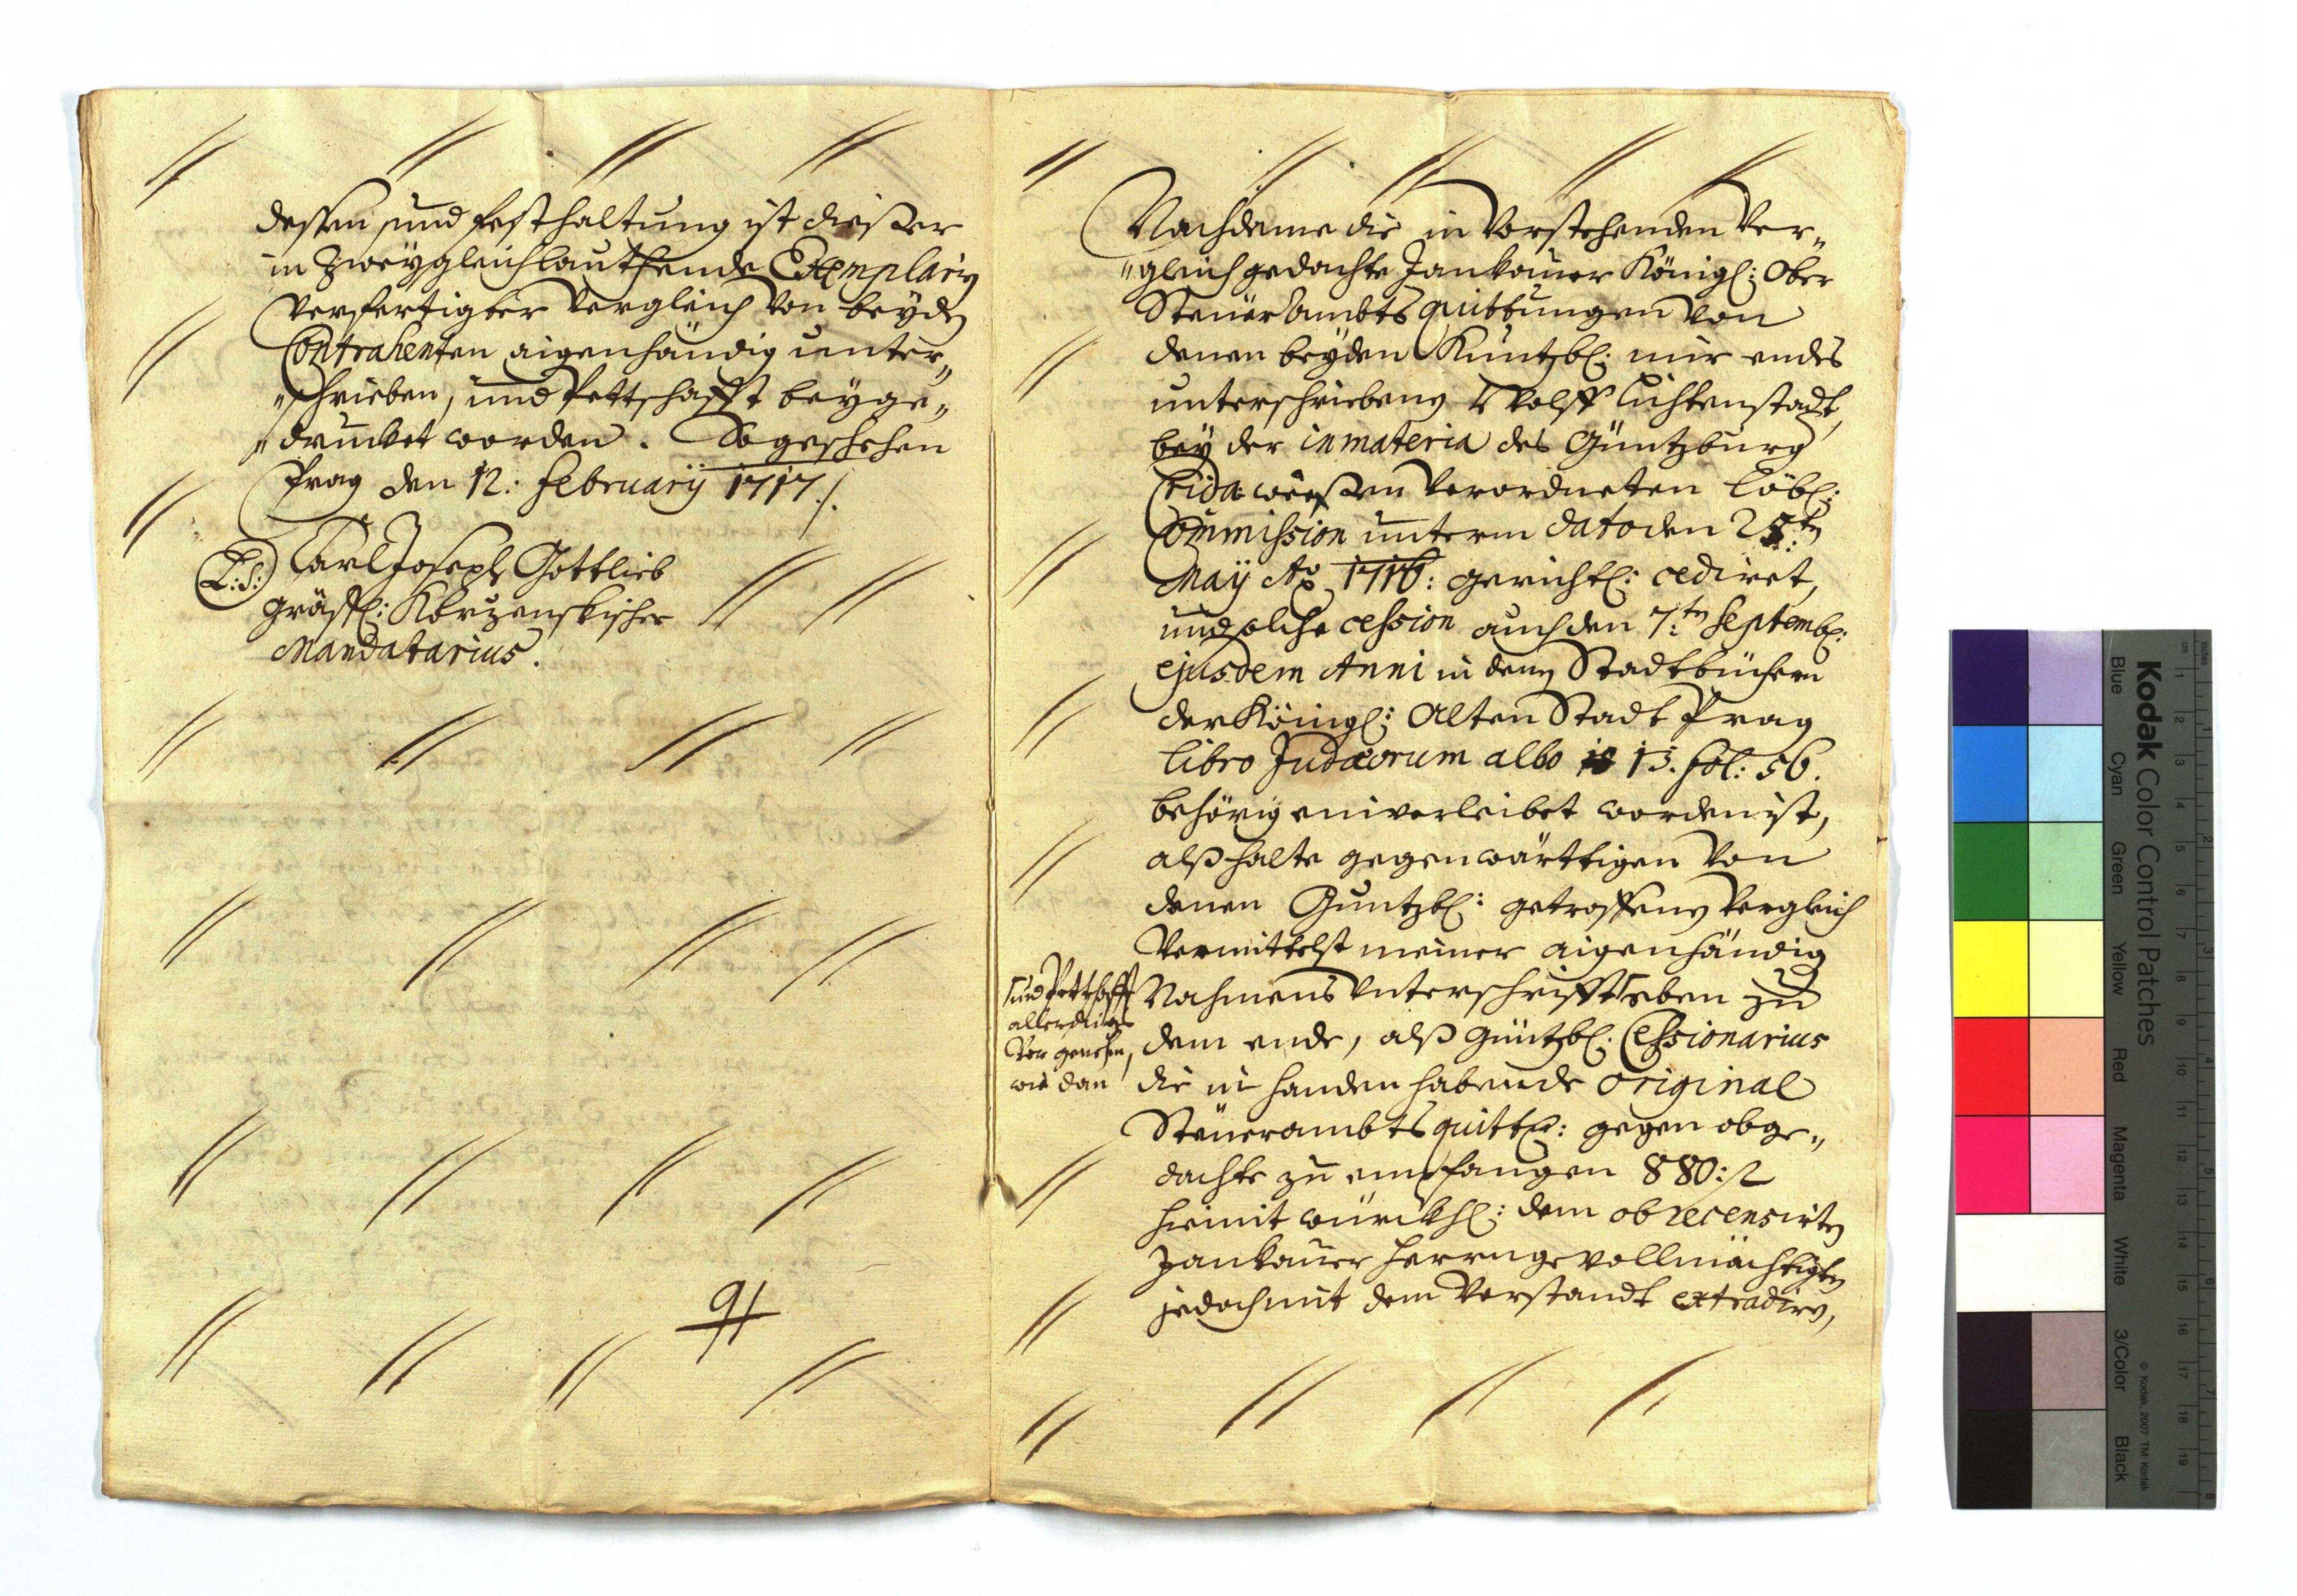 dessen, und festhaltung ist dießer
in zweÿ gleichlauthende Exemplarin
verfertigter Vergleich von beÿden
Contrahenten aigenhändig unter„
„schrieben, und Pettschafft beÿge„
„drucket worden. So geschehen
Prag den 12: Februarÿ 1717 /.
L: S: Carl Joseph Gottlieb
gräffl: Korzenskischer
Mandatarius.
Nachdeme die in Vorstehenden Ver„
„gleich gedachte Jankauer Königl: Ober
Steuer Ambts quittungen von
denen beÿden Küntzbl: mir endes
unterschriebenen Wolff Lichtenstadt,
beÿ der in materia des Güntzburg
Crida weeßen Verordneten Löbl:
Commission unterm dato den 25.ten
Maÿ Ao 1716: gerichtl: cediret,
und solche cession auch den 7:ten Septembl:
ejusdem Anni in denen Stadtbüchern
der Königl: Alten Stadt Prag
libro Judaeorum albo 13. fol: 56.
behörig einverleibet worden ist,
alß halte gegenwärttigen von
denen Güntzbl: getroffenen Vergleich
Vermittelst meiner aigenhändig
Nahmens Unterschrifft eben zu
und Pettschafft
allerdings
Vor genehm,
wie dan
dem ende, alß Güntzbl: Cessionarius
die in handen habende Original
Steuerambts quittl: gegen obge„
dachte zu empfangen 880: f
hiemit würckhl: dem obrecensirten
Jankauer herrn gevollmächtigten
jedoch mit dem Verstandt extradire,
Kodak Color Control Patches
Blue Cyan Green Yellow Red Magenta White 3/Color Black
© Kodak, 2007 TM: Kodak
inches 1 2 3 4 5 6 7 8
cm 1 2 3 4 5 6 7 8 9 10 11 12 13 14 15 16 17 18 19